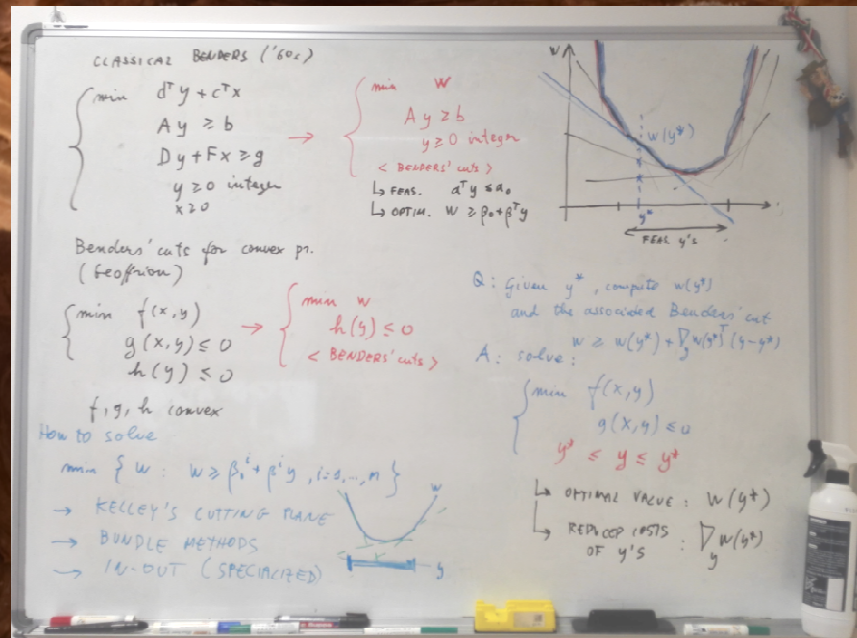 CLASSICAL BENDERS ('60s)
min dᵀy + cᵀx
Ay ≥ b
Dy + Fx ≥ g
y ≥ 0 integer
x ≥ 0
→
min w
Ay ≥ b
y ≥ 0 integer
< BENDERS' cuts >
↳ FEAS. αᵀy ≤ α₀
↳ OPTIM. w ≥ β₀ + βᵀy
w
w(y*)
y*
FEAS. y's
Benders' cuts for convex pr.
(Geoffrion)
min f(x,y)
g(x,y) ≤ 0
h(y) ≤ 0
f, g, h convex
→
min w
h(y) ≤ 0
< BENDERS' cuts >
How to solve
min { w : w ≥ β₀ⁱ + βⁱy, i=1,...,n }
→ KELLEY'S CUTTING PLANE
→ BUNDLE METHODS
→ IN-OUT (SPECIALIZED)
w
y
Q: Given y*, compute w(y*)
and the associated Benders' cut
w ≥ w(y*) + ∇_y w(y*)ᵀ(y-y*)
A: solve:
min f(x,y)
g(x,y) ≤ 0
y* ≤ y ≤ y*
↳ OPTIMAL VALUE: w(y*)
↳ REDUCED COSTS
OF y'S : ∇_y w(y*)